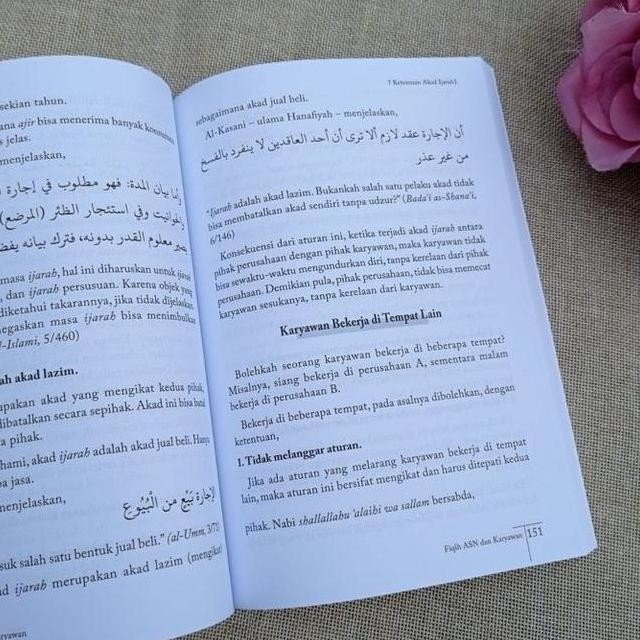 sekian tahun.
ana ajir bisa menerima banyak konsumen
s jelas.
menjelaskan,
بيان المدة: فهو مطلوب في إجارة
وفي استئجار الظئر (المرضع)
معلوم القدر بدونه، فترك بيانه
masa ijarah, hal ini diharuskan untuk ijarah
, dan ijarah persusuan. Karena objek yang
diketahui takarannya, jika tidak dijelaskan,
negaskan masa ijarah bisa menimbulkan
l-Islami, 5/460)
ah akad lazim.
upakan akad yang mengikat kedua pihak,
dibatalkan secara sepihak. Akad ini bisa batal
a pihak.
hami, akad ijarah adalah akad jual beli. Hanya
pa jasa.
menjelaskan,
لإجارة بَيْع من الْبُيُوع
suk salah satu bentuk jual beli." (al-Umm, 3/71)
ad ijarah merupakan akad lazim (mengikat)
aryawan
7 Ketentuan Akad Ijarah]
sebagaimana akad jual beli.
Al-Kasani – ulama Hanafiyah – menjelaskan,
أن الإجارة عقد لازم ألا ترى أن أحد العاقدين لا ينفرد بالفسخ
من غير عذر
"Ijarah adalah akad lazim. Bukankah salah satu pelaku akad tidak
bisa membatalkan akad sendiri tanpa udzur?" (Bada'i as-Shana'i,
6/146)
Konsekuensi dari aturan ini, ketika terjadi akad ijarah antara
pihak perusahaan dengan pihak karyawan, maka karyawan tidak
bisa sewaktu-waktu mengundurkan diri, tanpa kerelaan dari pihak
perusahaan. Demikian pula, pihak perusahaan, tidak bisa memecat
karyawan sesukanya, tanpa kerelaan dari karyawan.
Karyawan Bekerja di Tempat Lain
Bolehkah seorang karyawan bekerja di beberapa tempat?
Misalnya, siang bekerja di perusahaan A, sementara malam
bekerja di perusahaan B.
Bekerja di beberapa tempat, pada asalnya dibolehkan, dengan
ketentuan,
1. Tidak melanggar aturan.
Jika ada aturan yang melarang karyawan bekerja di tempat
lain, maka aturan ini bersifat mengikat dan harus ditepati kedua
pihak. Nabi shallallahu 'alaihi wa sallam bersabda,
Fiqih ASN dan Karyawan 151